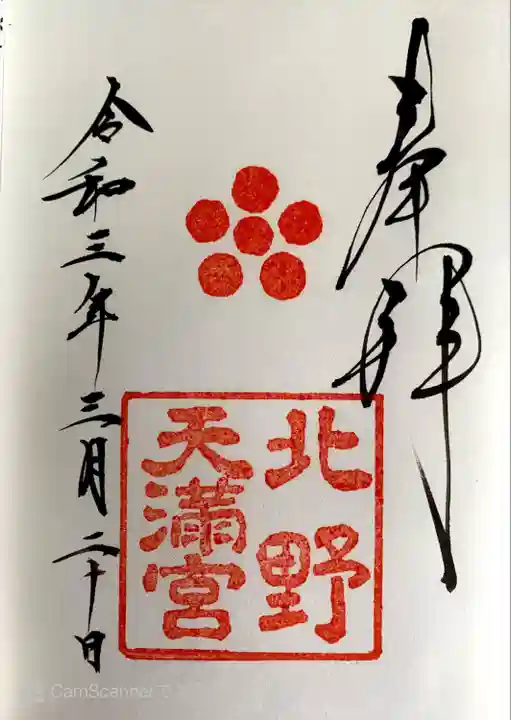 奉拝
北野
天満宮
令和三年三月二十日
CamScannerで